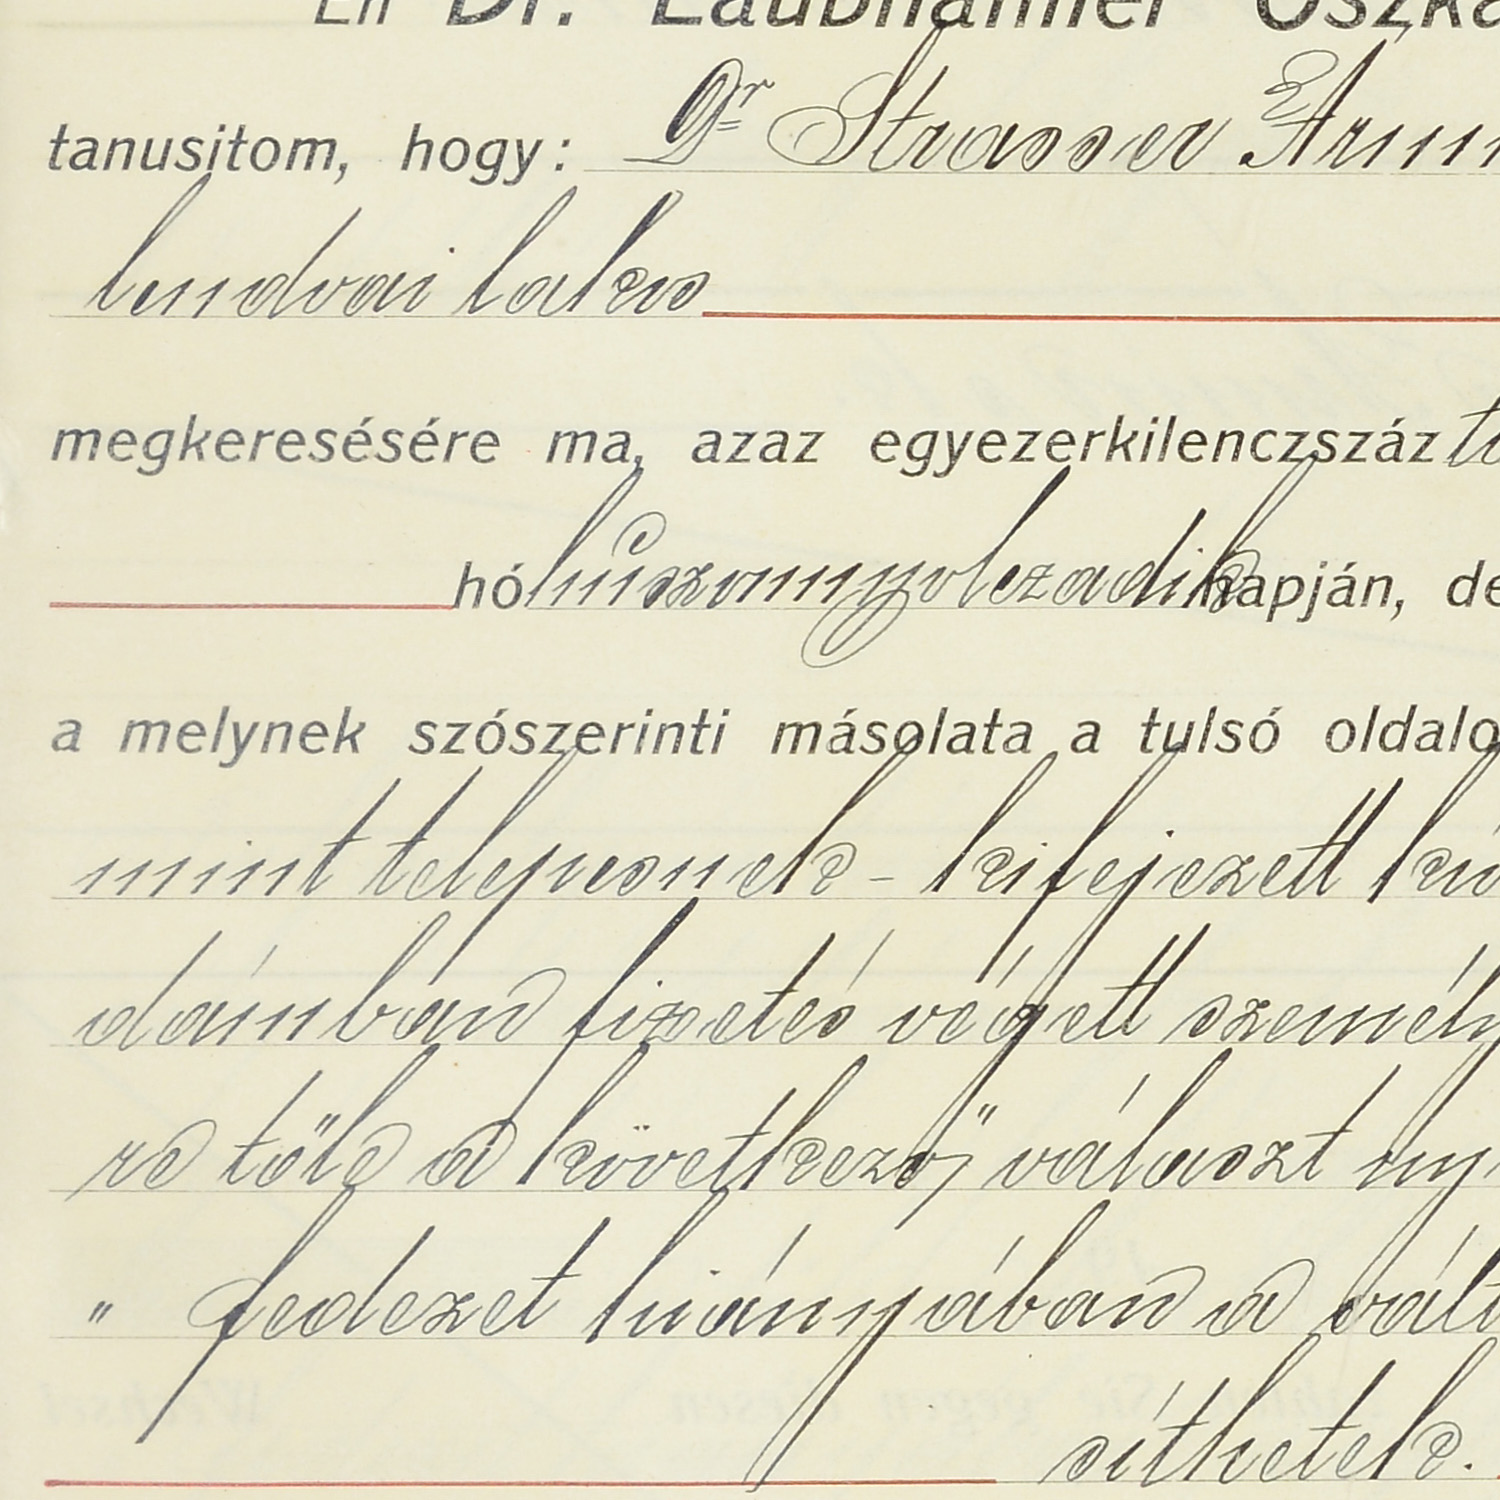 Én Dr. Laubhaimer Oszká
tanusitom, hogy: Dr Strasser Árm
lendvai lakos
megkeresésére ma, azaz egyezerkilenczszáz ti
hó huszonnyolczadik napján, de
a melynek szószerinti másolata a tulsó oldalo
mint telepesnek - kifejezett
dámban fizetés végett személy
re tőle a következő választ ny
" fedezet hiányában a vált
síthetek.